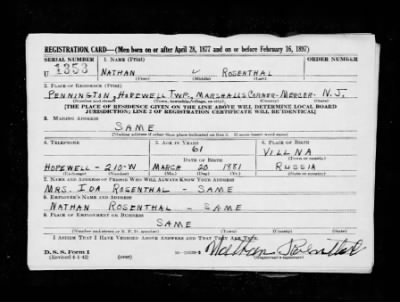 REGISTRATION CARD—(Men born on or after April 28, 1877 and on or before February 16, 1897)
SERIAL NUMBER 1. NAME (Print) ORDER NUMBER
U 1353 NATHAN V ROSENTHAL
(First) (Middle) (Last)
2. PLACE OF RESIDENCE (Print)
PENNINGTON, HOPEWELL TWP., MARSHALLS CORNER - MERCER - N.J.
(Number and street) (Town, township, village, or city) (County) (State)
[THE PLACE OF RESIDENCE GIVEN ON THE LINE ABOVE WILL DETERMINE LOCAL BOARD
JURISDICTION; LINE 2 OF REGISTRATION CERTIFICATE WILL BE IDENTICAL]
3. MAILING ADDRESS
SAME
[Mailing address if other than place indicated on line 2. If same insert word same]
4. TELEPHONE 5. AGE IN YEARS 6. PLACE OF BIRTH
61 VILLNA
DATE OF BIRTH (Town or county)
HOPEWELL - 210-W MARCH 20 1881 RUSSIA
(Exchange) (Number) (Mo.) (Day) (Yr.) (State or country)
7. NAME AND ADDRESS OF PERSON WHO WILL ALWAYS KNOW YOUR ADDRESS
MRS. IDA ROSENTHAL - SAME
8. EMPLOYER'S NAME AND ADDRESS
NATHAN ROSENTHAL - SAME
9. PLACE OF EMPLOYMENT OR BUSINESS
SAME
(Number and street or R. F. D. number) (Town) (County) (State)
I AFFIRM THAT I HAVE VERIFIED ABOVE ANSWERS AND THAT THEY ARE TRUE.
D. S. S. Form 1 Nathan Rosenthal
(Revised 4-1-42) (over) (Registrant's signature)